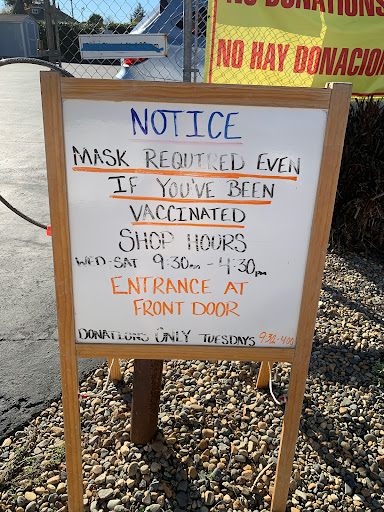 NO DONATIONS
NO HAY DONACION
NOTICE
MASK REQUIRED EVEN
IF YOU'VE BEEN
VACCINATED
SHOP HOURS
WED-SAT 9:30am - 4:30pm
ENTRANCE AT
FRONT DOOR
DONATIONS ONLY TUESDAYS 9:30-4:00